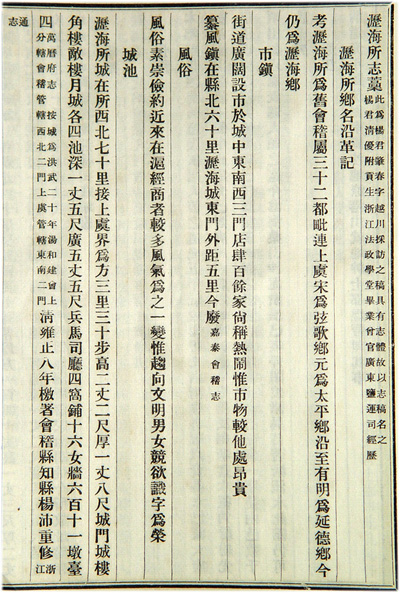 瀝海所志藁此爲楊君肇春字越川採訪之稿具有志體故以志稿名之
楊君清優附貢生浙江法政學堂畢業曾官廣東鹽運司經歷
瀝海所鄉名沿革記
考瀝海所爲舊會稽屬三十二都毗連上虞宋爲弦歌鄉元爲太平鄉沿至有明爲延德鄉今
仍爲瀝海鄉
市鎮
街道廣闊設市於城中東南西三門店肆百餘家尙稱熱鬧惟市物較他處昂貴
纂風鎮在縣北六十里瀝海城東門外距五里今廢嘉泰會稽志
風俗
風俗素崇儉約近來在滬經商者較多風氣爲之一變惟趨向文明男女競欲識字爲榮
城池
瀝海所城在所西北七十里接上虞界爲方三里三十步高二丈二尺厚一丈八尺城門城樓
角樓敵樓月城各四池深一丈五尺廣五丈五尺兵馬司廳四窩鋪十六女牆六百十一墩臺
四萬曆府志 按城爲洪武二十年湯和建曾上
分轄會稽管轄西北二門上虞管轄東南二門清雍正八年檄署會稽縣知縣楊沛重修浙江
通志